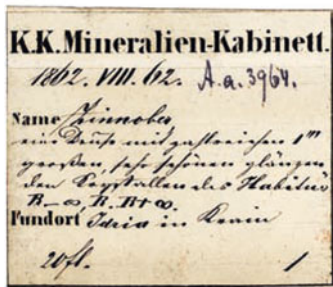 K.K. Mineralien-Kabinett.
1862. VIII. 62. A.a. 3964.
Name Zinnober
eine Druse mit zahlreichen 1'''
großen, sehr schönen glänzen
den Krystallen des Habitus
R-∞. R. R+∞.
Fundort Idria in Krain
20fl. 1